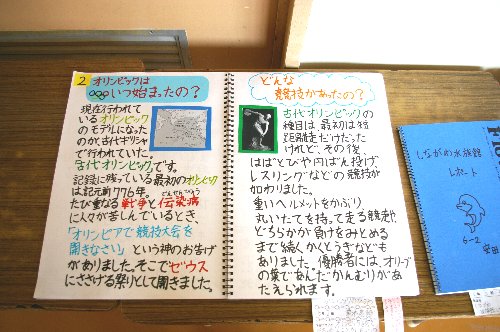 2 オリンピックは
いつ始まったの?
現在行われて
いるオリンピック
のモデルになった
のが、古代ギリシャ
で行われていた。
「古代オリンピック」です。
記録に残っている最初のオリンピック
は紀元前776年。
たび重なる戦争と伝染病
に人々が苦しんでいるとき、
「オリンピアで競技大会を
開きなさい」という神のお告げ
がありました。そこでゼウス
にささげる祭りとして開きました。
どんな
競技があったの?
古代オリンピックの
種目は、最初は短
距離走だけだった
けれど、その後
はばとびや円ばん投げ、
レスリングなどの競技が
加わりました。
重いヘルメットをかぶり、
丸いたてを持って走る競走や、
どちらかが負けをみとめる
まで続くかくとうぎなども
ありました。優勝者には、オリーブ
の葉であんだかんむりがあ
たえられます。
しながわ水族館
レポート
6-2